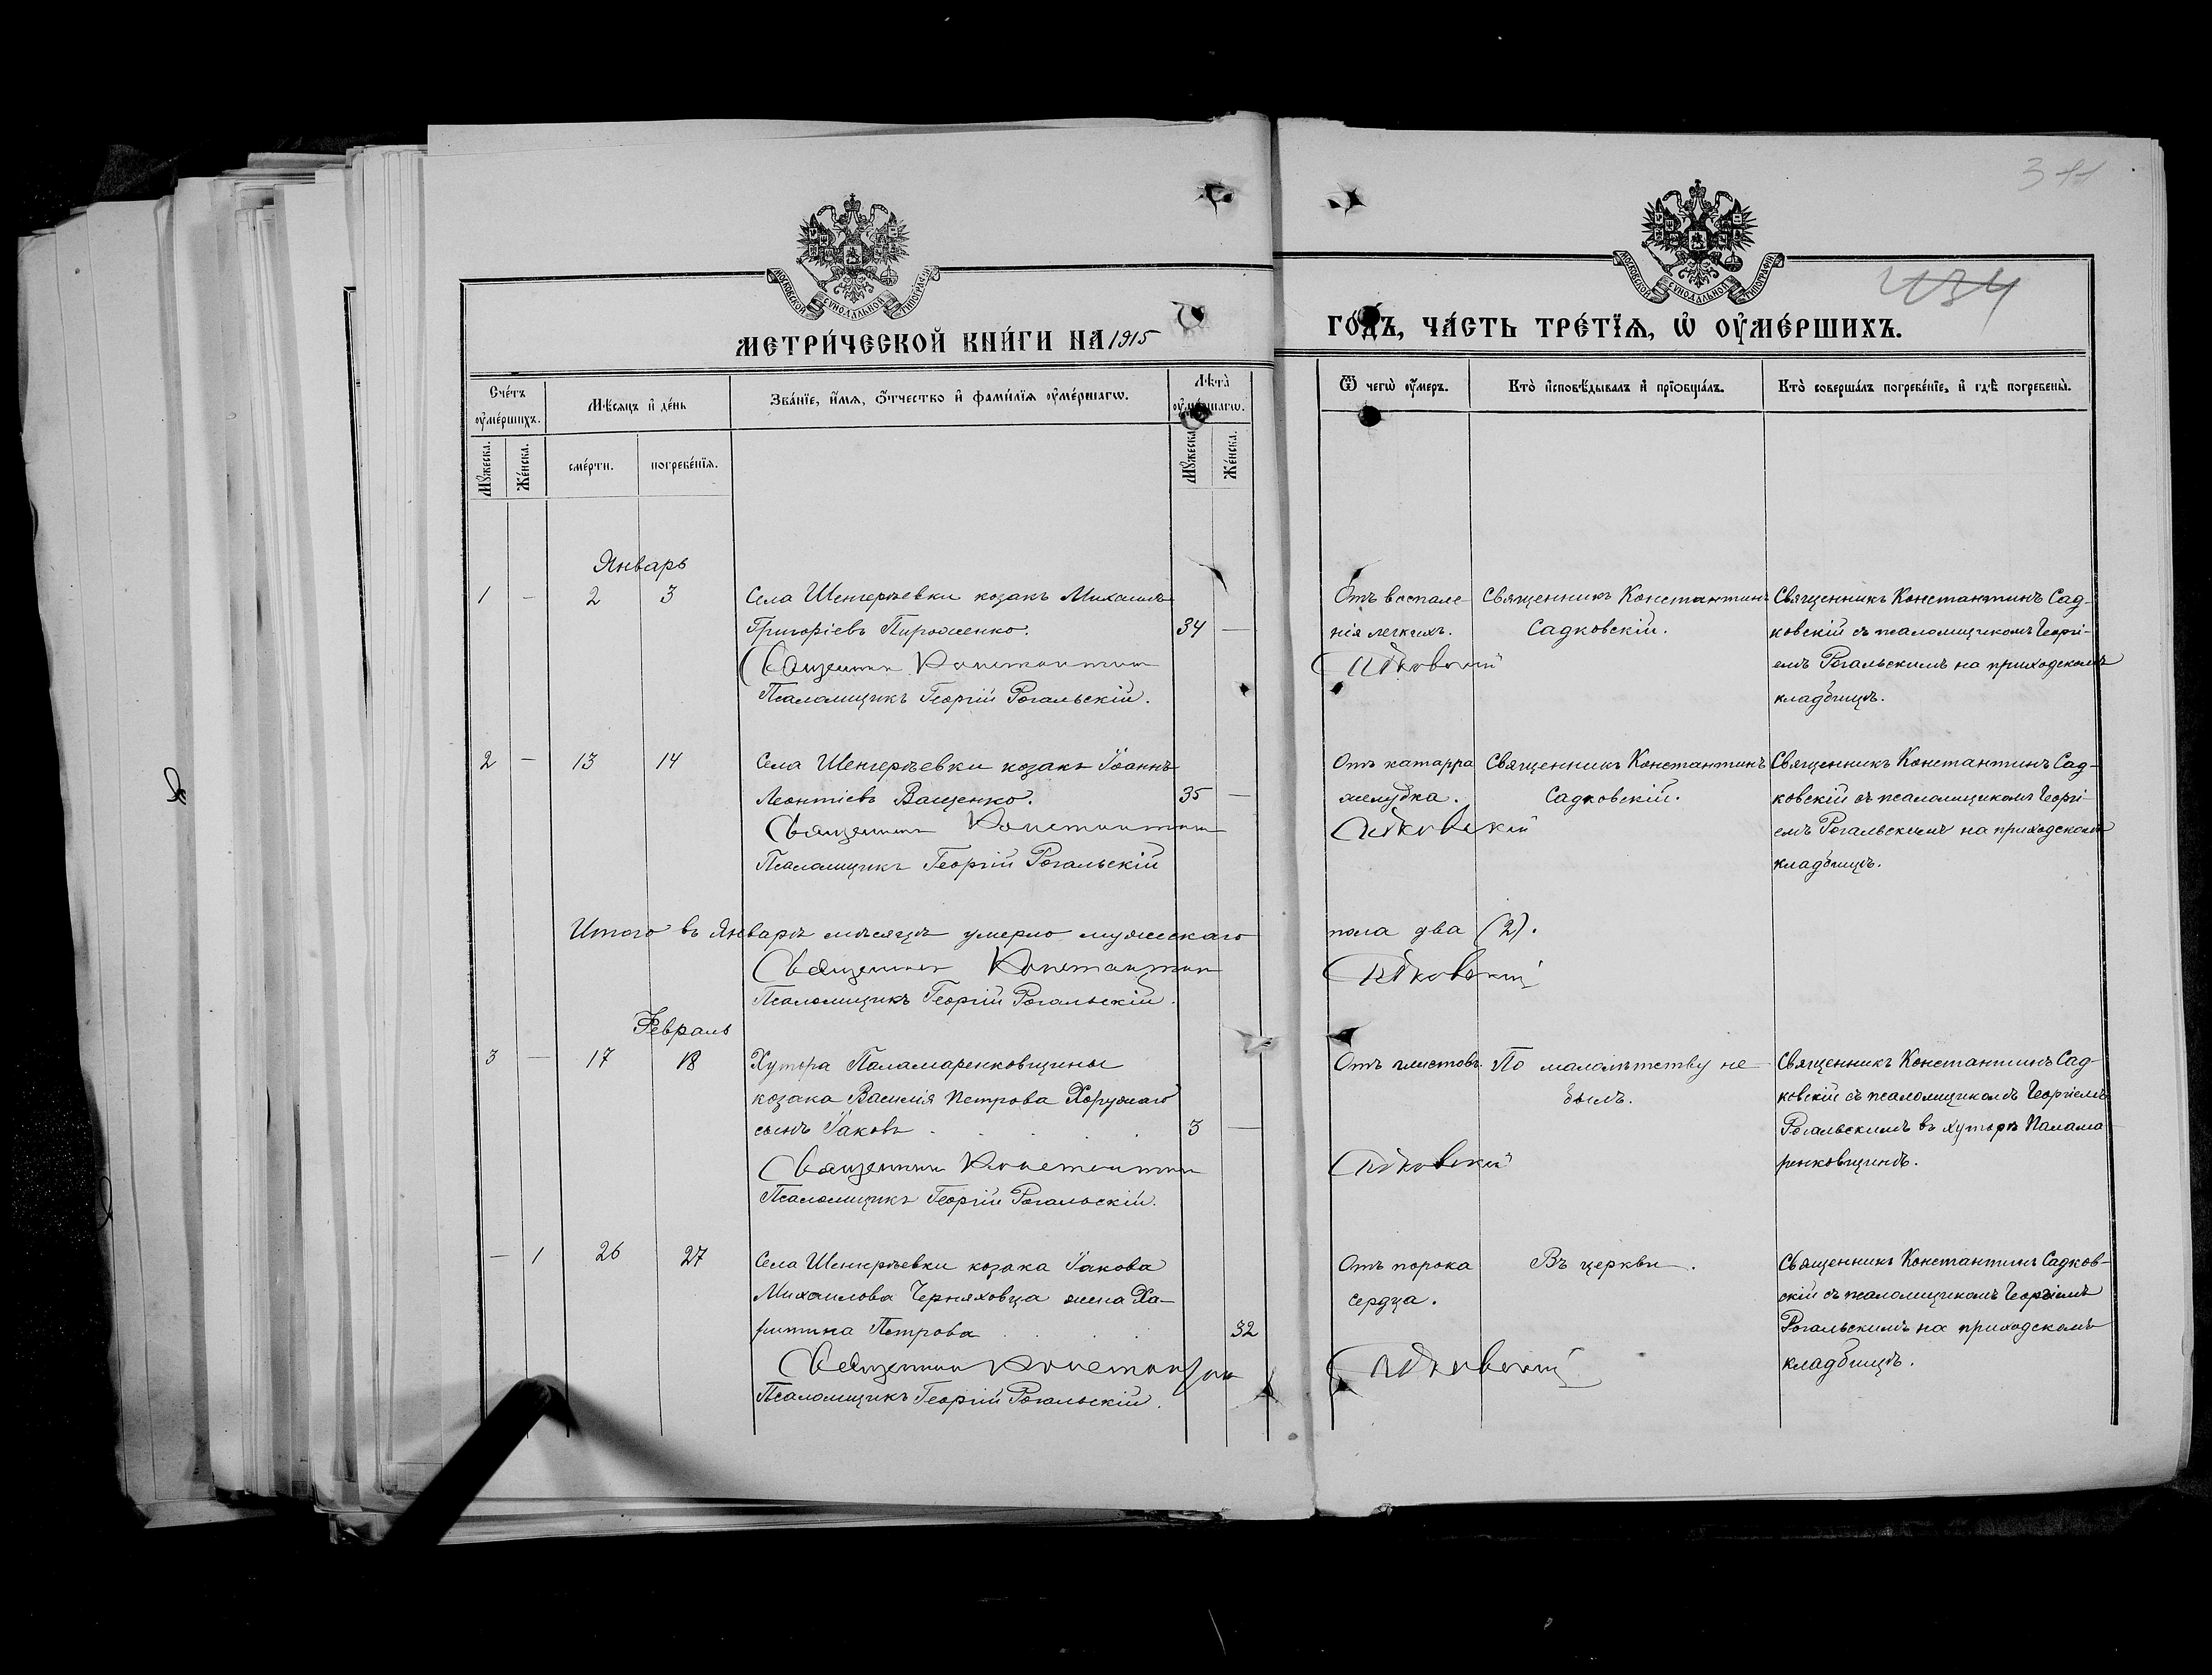 311
434
МОСКОВСКОЙ СѴНОДАЛЬНОЙ ТИПОГРАФІИ
МОСКОВСКОЙ СѴНОДАЛЬНОЙ ТИПОГРАФІИ
МЕТРИ́ЧЕСКОЙ КНИ́ГИ НА 1915
ГО́ДЪ, ЧА́СТЬ ТРЕ́ТЇѦ, Ѡ҆ ОУ҆МЕ́РШИХЪ.
Сче́тъ оу҆ме́ршихъ.
Мѣ́сѧцъ и҆ де́нь
Зва́нїе, и҆́мѧ, ѻ҆́тчество и҆ фами́лїѧ оу҆ме́ршагѡ.
Лѣ́та оу҆ме́ршагѡ.
Ѿ чегѡ̀ оу҆́меръ.
Кто̀ и҆сповѣ́дывалъ и҆ прїѡбща́лъ.
Кто̀ соверша́лъ погребе́нїе, и҆ гдѣ̀ погребены̀.
Мꙋ́жеска.
Же́нска.
сме́рти.
погребе́нїѧ.
Мꙋ́жеска.
Же́нска.
Январь
1 – 2 3 Села Шенгерѣевки козакъ Михаилъ
Григоріевъ Пироженко. 34 –
Священникъ Константинъ
Псаломщикъ Георгій Рогальскій.
Отъ воспале-
нія легкихъ.
Садковскій
Священникъ Константинъ
Садковскій.
Священникъ Константинъ Сад-
ковскій съ псаломщикомъ Георгі-
емъ Рогальскимъ на приходскомъ
кладбищѣ.
2 – 13 14 Села Шенгерѣевки козакъ Іоаннъ
Леонтіевъ Ващенко. 35 –
Священникъ Константинъ
Псаломщикъ Георгій Рогальскій
Отъ катарра
желудка.
Садковскій
Священникъ Константинъ
Садковскій.
Священникъ Константинъ Сад-
ковскій съ псаломщикомъ Георгі-
емъ Рогальскимъ на приходскомъ
кладбищѣ.
Итого въ Январѣ мѣсяцѣ умерло мужескаго пола два (2).
Священникъ Константинъ Садковскій
Псаломщикъ Георгій Рогальскій.
Февраль
3 – 17 18 Хутора Паламаренковщины
козака Василія Петрова Хоружаго
сынъ Іаковъ . . . . . 3 –
Священникъ Константинъ
Псаломщикъ Георгій Рогальскій.
Отъ глистовъ.
Садковскій
По малолѣтству не
былъ.
Священникъ Константинъ Сад-
ковскій съ псаломщикомъ Георгіемъ
Рогальскимъ въ хуторѣ Палама-
ренковщинѣ.
– 1 26 27 Села Шенгерѣевки козака Іакова
Михаилова Черняховца жена Ха-
ритина Петрова . . . . 32
Священникъ Константинъ
Псаломщикъ Георгій Рогальскій.
Отъ порока
сердца.
Садковскій
Въ церкви.
Священникъ Константинъ Садков-
скій съ псаломщикомъ Георгіемъ
Рогальскимъ на приходскомъ
кладбищѣ.